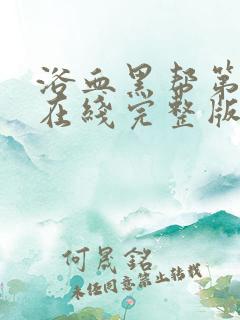 浴血黑帮第
在线完整版
何晟铭
未经同意禁止转载